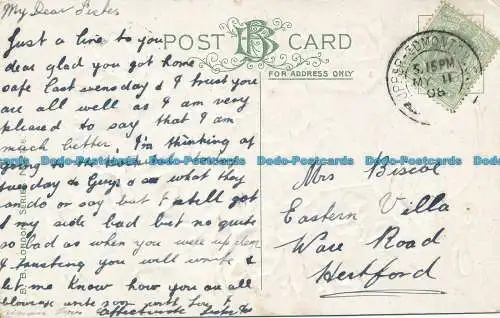 My Dear
Just a line to you
dear glad you got home
safe last wensday & I trust you
are all well as I am very
pleased to say that I am
much better. I'm thinking of
going to the
tuesday to Guys & see what they
do or say but I still got
my side bad but no quite
so bad as when you were up dear
I trusting you will write &
let me know how you are all
write soon with love
affectionate
POST CARD
B
FOR ADDRESS ONLY
UPPER EDMONTON
5.15PM
MY 11
08
Mrs Biscoe
Eastern Villa
Ware Road
Hertford
B. B. LONDON SERIES
Dodo-Postcards Dodo-Postcards Dodo-Postcards Dodo-Postcards Dodo-Postcards